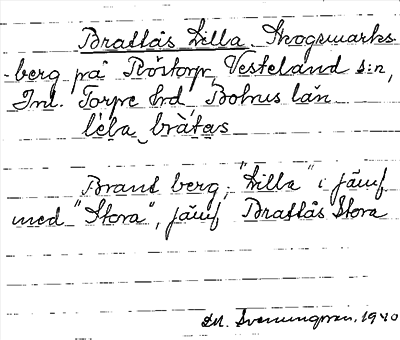 Brattås Lilla. Skogsmarks-
berg på Röstorp, Västerland s:n,
Inl. Torpe hd Bohus län
lèla bràtas
Brant berg; "Lilla" i jämf
med "Stora", jämf Brattås Stora
M. Svenungsson. 1940